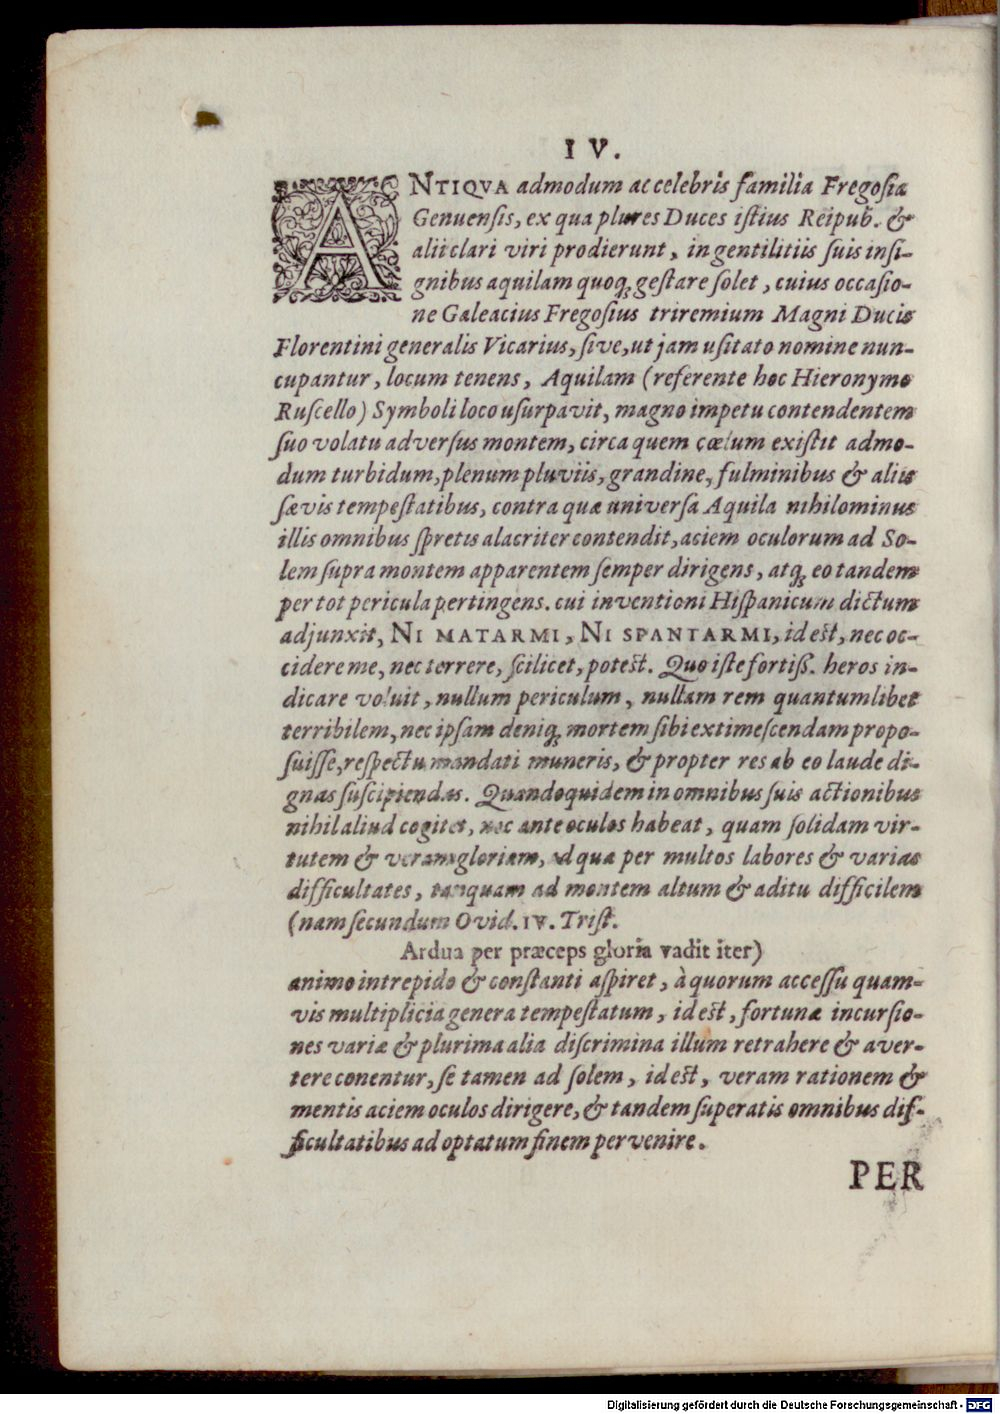 IV.
ANTIQVA admodum ac celebris familia Fregosia
Genuensis, ex qua plures Duces istius Reipub. &
alii clari viri prodierunt, in gentilitiis suis insi-
gnibus aquilam quoq; gestare solet, cuius occasio-
ne Galeacius Fregosius triremium Magni Ducis
Florentini generalis Vicarius, sive, ut jam usitato nomine nun-
cupantur, locum tenens, Aquilam (referente hoc Hieronymo
Ruscello) Symboli loco usurpavit, magno impetu contendentem
suo volatu adversus montem, circa quem cœlum existit admo-
dum turbidum, plenum pluviis, grandine, fulminibus & aliis
sævis tempestatibus, contra quæ universa Aquila nihilominus
illis omnibus spretis alacriter contendit, aciem oculorum ad So-
lem supra montem apparentem semper dirigens, atq; eo tandem
per tot pericula pertingens. cui inventioni Hispanicum dictum
adjunxit, NI MATARMI, NI SPANTARMI, id est, nec oc-
cidere me, nec terrere, scilicet, potest. Quo iste fortiss. heros in-
dicare voluit, nullum periculum, nullam rem quantumlibet
terribilem, nec ipsam deniq; mortem sibi extimescendam propo-
suisse, respectu mandati muneris, & propter res ab eo laude di-
gnas suscipiendas. Quandoquidem in omnibus suis actionibus
nihil aliud cogitet, nec ante oculos habeat, quam solidam vir-
tutem & veram gloriam, ad quæ per multos labores & varias
difficultates, tanquam ad montem altum & aditu difficilem
(nam secundum Ovid. IV. Trist.
Ardua per præceps gloria vadit iter)
animo intrepido & constanti aspiret, à quorum accessu quam-
vis multiplicia genera tempestatum, id est, fortunæ incursio-
nes variæ & plurima alia discrimina illum retrahere & aver-
tere conentur, se tamen ad solem, id est, veram rationem &
mentis aciem oculos dirigere, & tandem superatis omnibus dif-
ficultatibus ad optatum finem pervenire.
PER
Digitalisierung gefördert durch die Deutsche Forschungsgemeinschaft - DFG